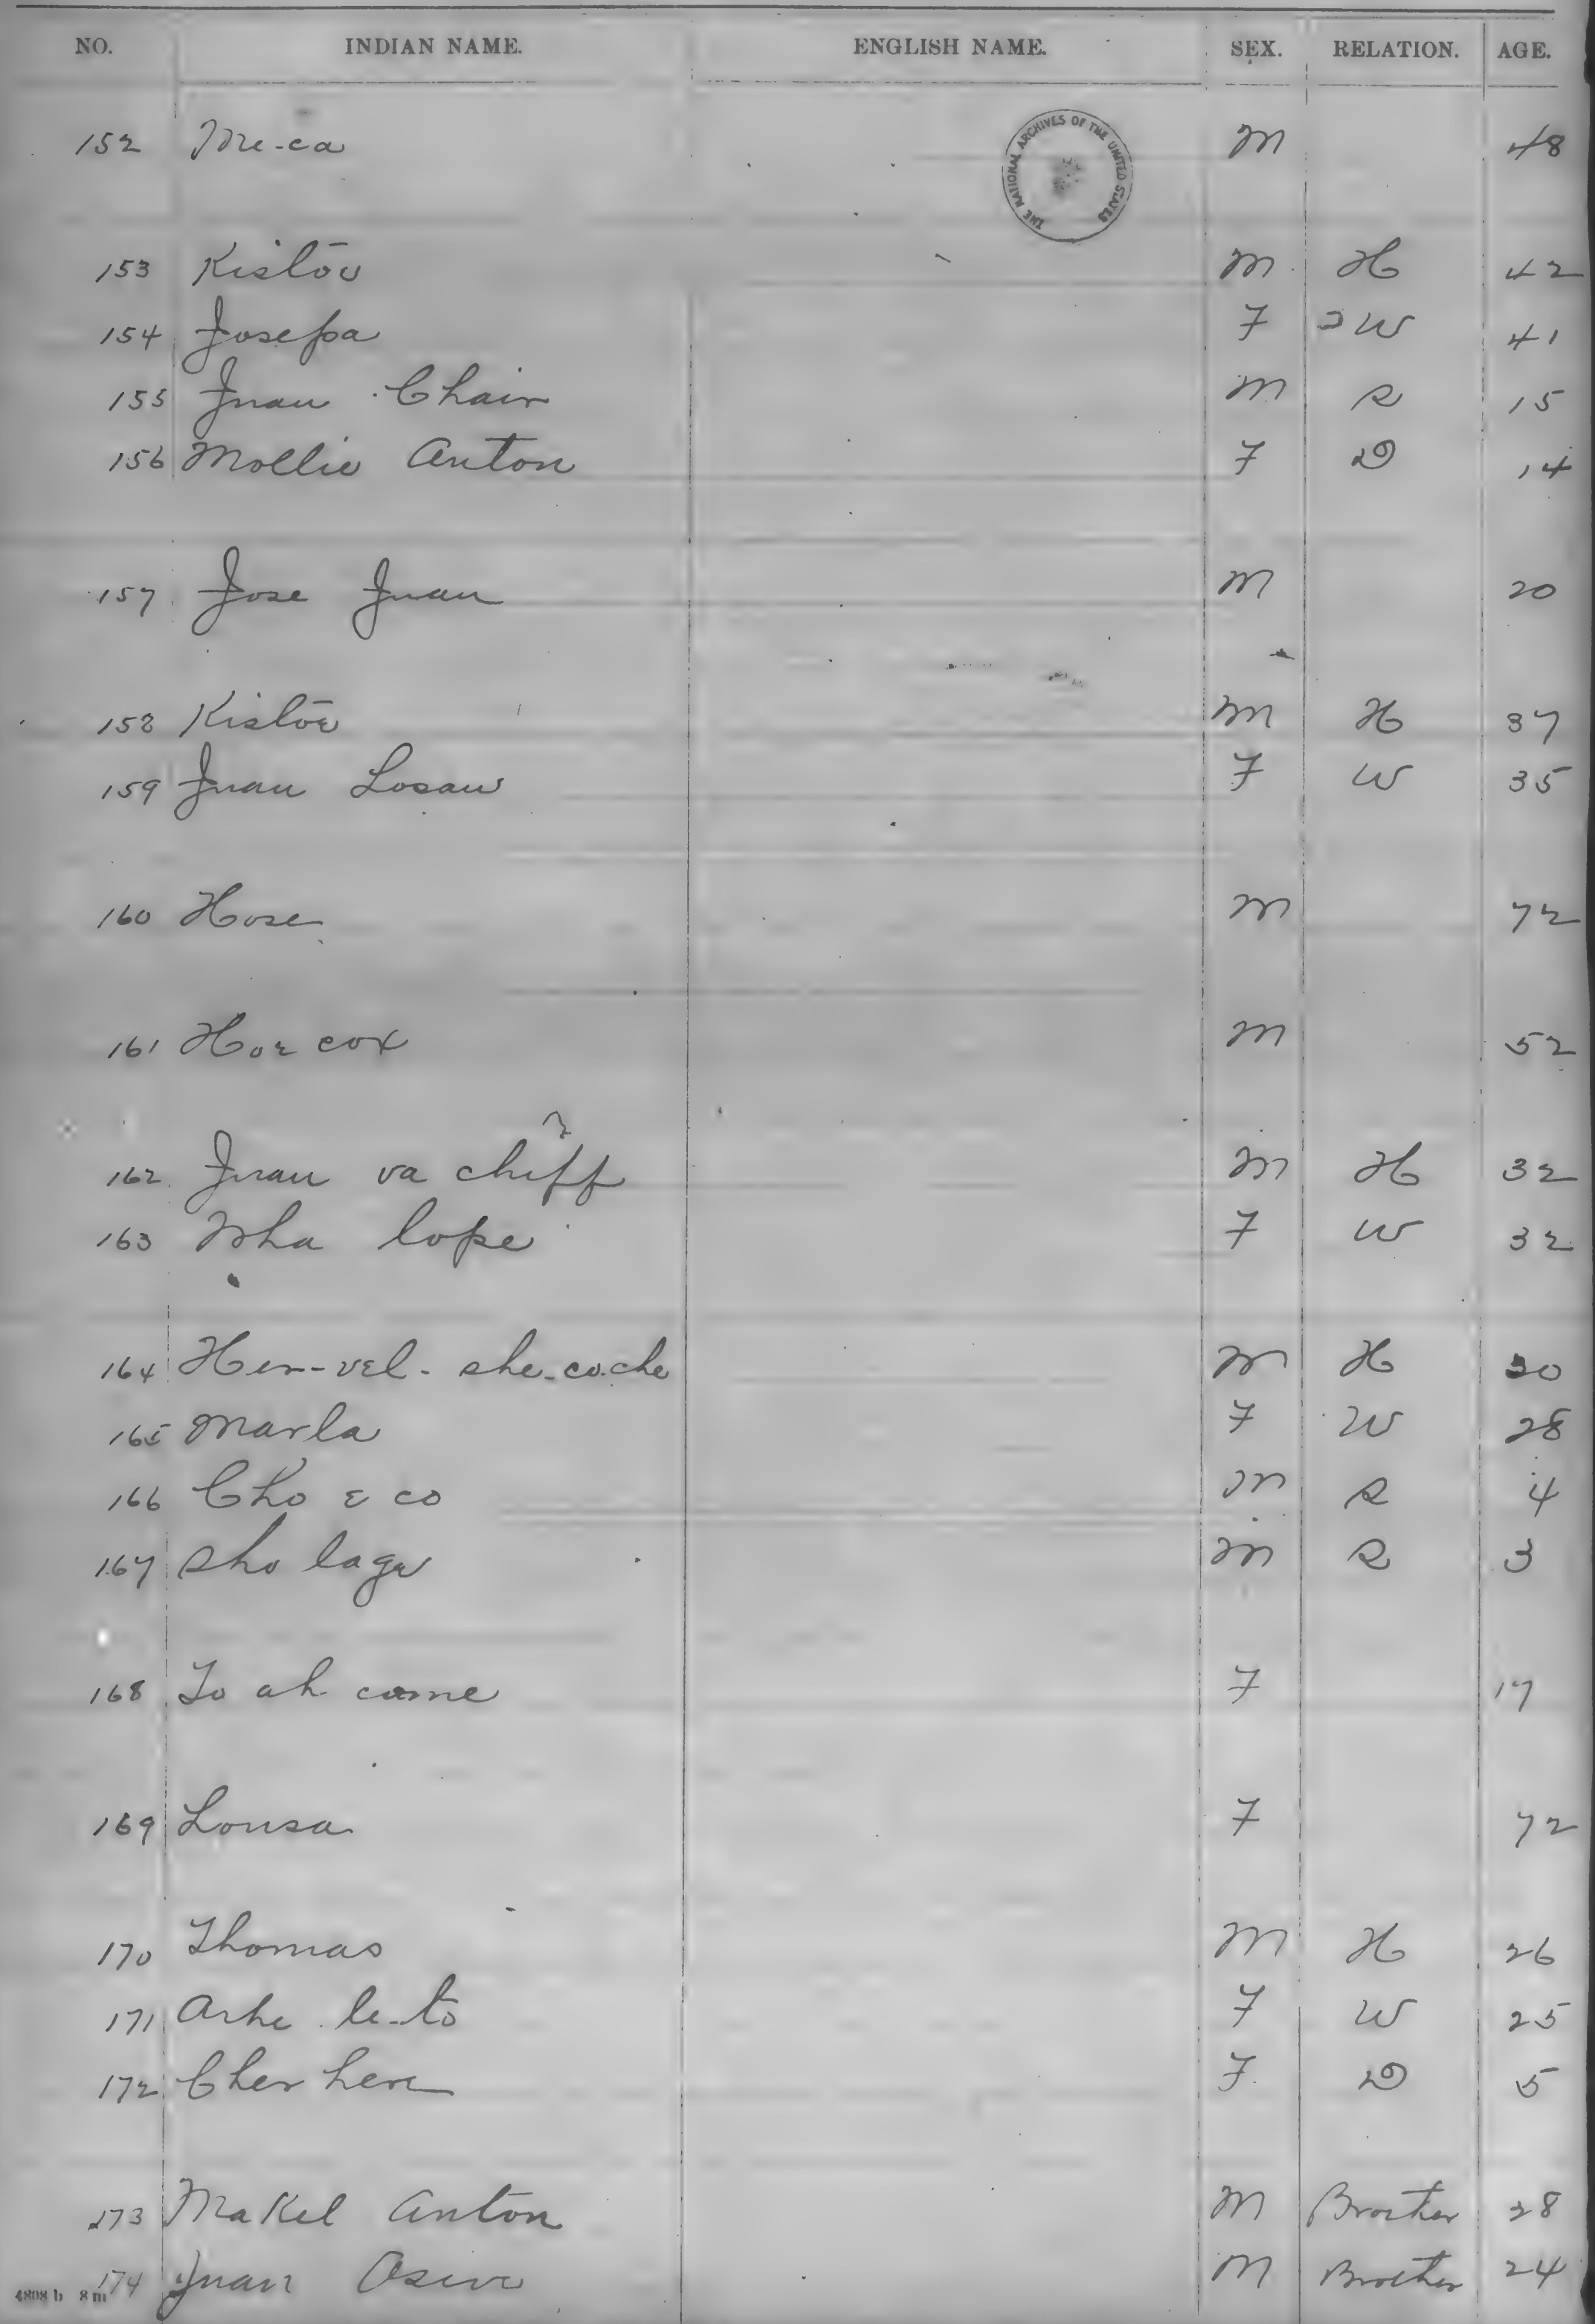 NO. INDIAN NAME. ENGLISH NAME. SEX. RELATION. AGE.
THE NATIONAL ARCHIVES OF THE UNITED STATES
152 Me-ca M 48
153 Kistōv M H 42
154 Josefsa F W 41
155 Juan Chair M S 15
156 Mollie Anton F D 14
157 Jose Juan M 20
158 Kistōv M H 37
159 Juan Losaw F W 35
160 Hose M 72
161 Hor cox M 52
162 Juan va chiff M H 32
163 Nha lope F W 32
164 Hen-vel-she-co-che M H 30
165 Marla F W 28
166 Cho e co M S 4
167 Sho lage M S 3
168 To ah come F 17
169 Lousa F 72
170 Thomas M H 26
171 Arhe le-to F W 25
172 Cher here F D 5
173 Makel Anton M Brother 28
174 Juan M Brother 24
4808 b 8 m